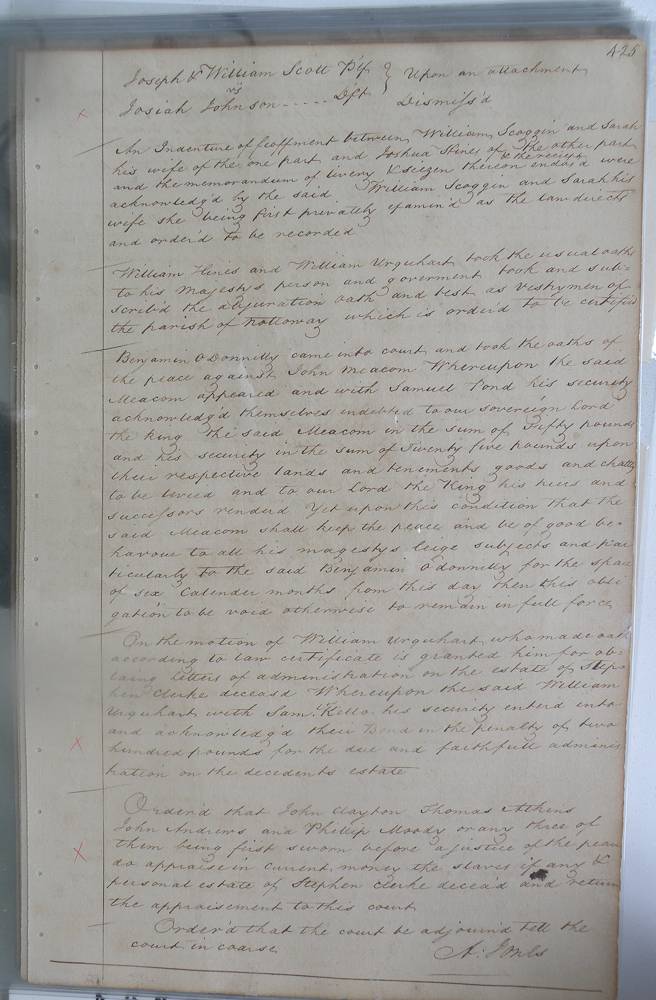 425
Joseph & William Scott Plfs } Upon an attachment
vs
Josiah Johnson ..... Dft } Dismiss'd
An Indenture of feoffment between William Scoggin and Sarah
his wife of the one part and Joshua Hines of the other part
and the memorandum of livery & seizen thereon endors'd & the receipt were
acknowledg'd by the said William Scoggin and Sarah his
wife she being first privately examin'd as the law directs
and order'd to be recorded
William Hines and William Urquhart took the usual oaths
to his Majestys person and goverment took and sub=
scrib'd the abjuration oath and test as vestrymen of
the parish of Nottoway which is order'd to be certified
Benjamin O Donnilly came into court and took the oaths of
the peace against John Meacom Whereupon the said
Meacom appeared and with Samuel Pond his security
acknowledg'd themselves indebted to our sovereign Lord
the king the said Meacom in the sum of Fifty pounds
and his security in the sum of Twenty five pounds upon
their respective lands and tenements goods and chatts
to be levied and to our Lord the King his heirs and
successors render'd Yet upon this condition that the
said Meacom shall keep the peace and be of good be=
haviour to all his magestys leige subjects and par
ticularly to the said Benjamin O donnilly for the space
of sex Calender months from this day then this obli
gation to be void otherwise to remain in full force
On the motion of William Urquhart who made oath
according to law certificate is granted him for ob=
taing letters of administration on the estate of Step=
hen Clerke deceasd Whereupon the said William
Urquhart with Saml. Kello his security enterd into
and acknowledg'd their Bond in the penalty of two
hundred pounds for the due and faithfull adminis
tration on the decedents estate
Order'd that John Clayton Thomas Atkins
John Andrews and Phillip Moody or any three of
them being first sworn before a justice of the peace
do appraise in current money the slaves if any &
personal estate of Stephen Clerke deceas'd and return
the appraisement to this court
Order'd that the court be adjourn'd tell the
court in coarse
A: Jones